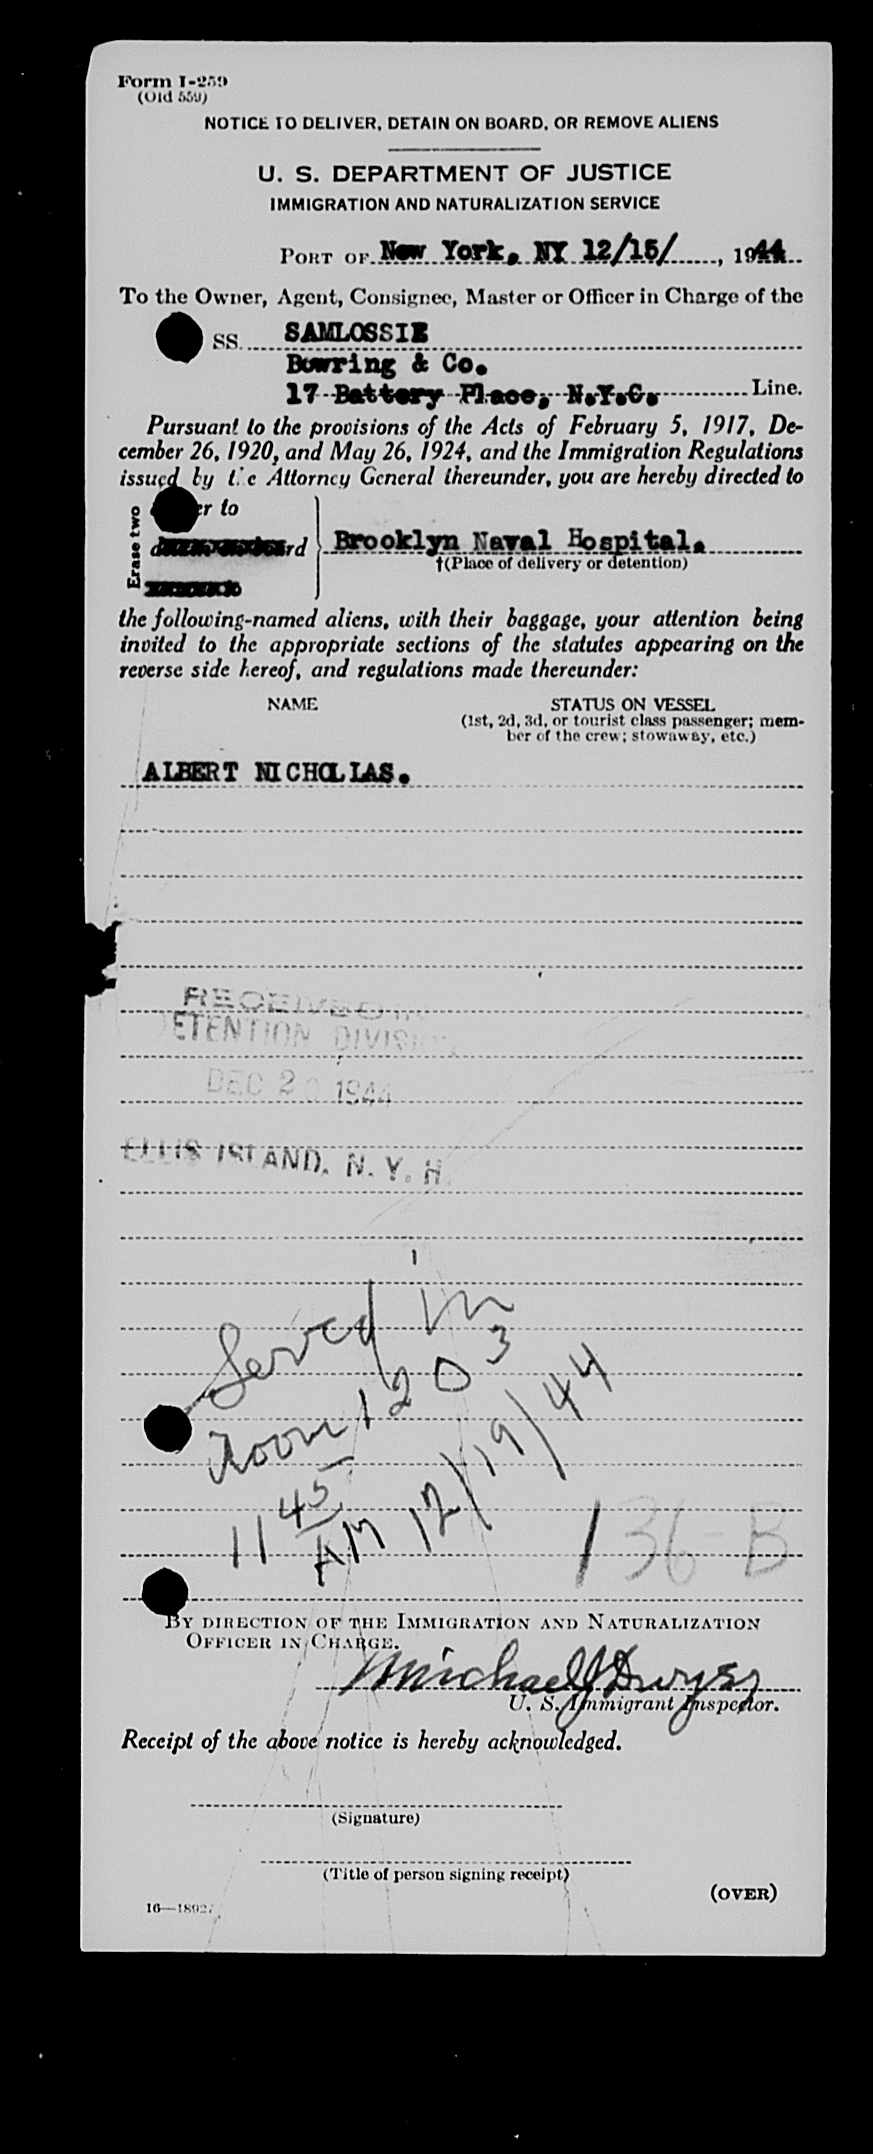 Form I-259
(Old 559)
NOTICE TO DELIVER, DETAIN ON BOARD, OR REMOVE ALIENS
U. S. DEPARTMENT OF JUSTICE
IMMIGRATION AND NATURALIZATION SERVICE
PORT OF New York, NY 12/15/, 1944
To the Owner, Agent, Consignee, Master or Officer in Charge of the
SS. SAMLOSSIE
Bowring & Co.
17 Battery Place, N.Y.C. Line.
Pursuant to the provisions of the Acts of February 5, 1917, De-
cember 26, 1920, and May 26, 1924, and the Immigration Regulations
issued by the Attorney General thereunder, you are hereby directed to
Erase two
to
Brooklyn Naval Hospital.
†(Place of delivery or detention)
the following-named aliens, with their baggage, your attention being
invited to the appropriate sections of the statutes appearing on the
reverse side hereof, and regulations made thereunder:
NAME STATUS ON VESSEL
(1st, 2d, 3d, or tourist class passenger; mem-
ber of the crew; stowaway, etc.)
ALBERT NICHOLLAS.
RECEIVED
DETENTION DIVISION
DEC 20 1944
ELLIS ISLAND, N. Y. H.
Served in
Room 1203
11 45 AM 12/19/44
136-B
BY DIRECTION OF THE IMMIGRATION AND NATURALIZATION
OFFICER IN CHARGE.
Michael J Dwyer
U. S. Immigrant Inspector.
Receipt of the above notice is hereby acknowledged.
(Signature)
(Title of person signing receipt)
(OVER)